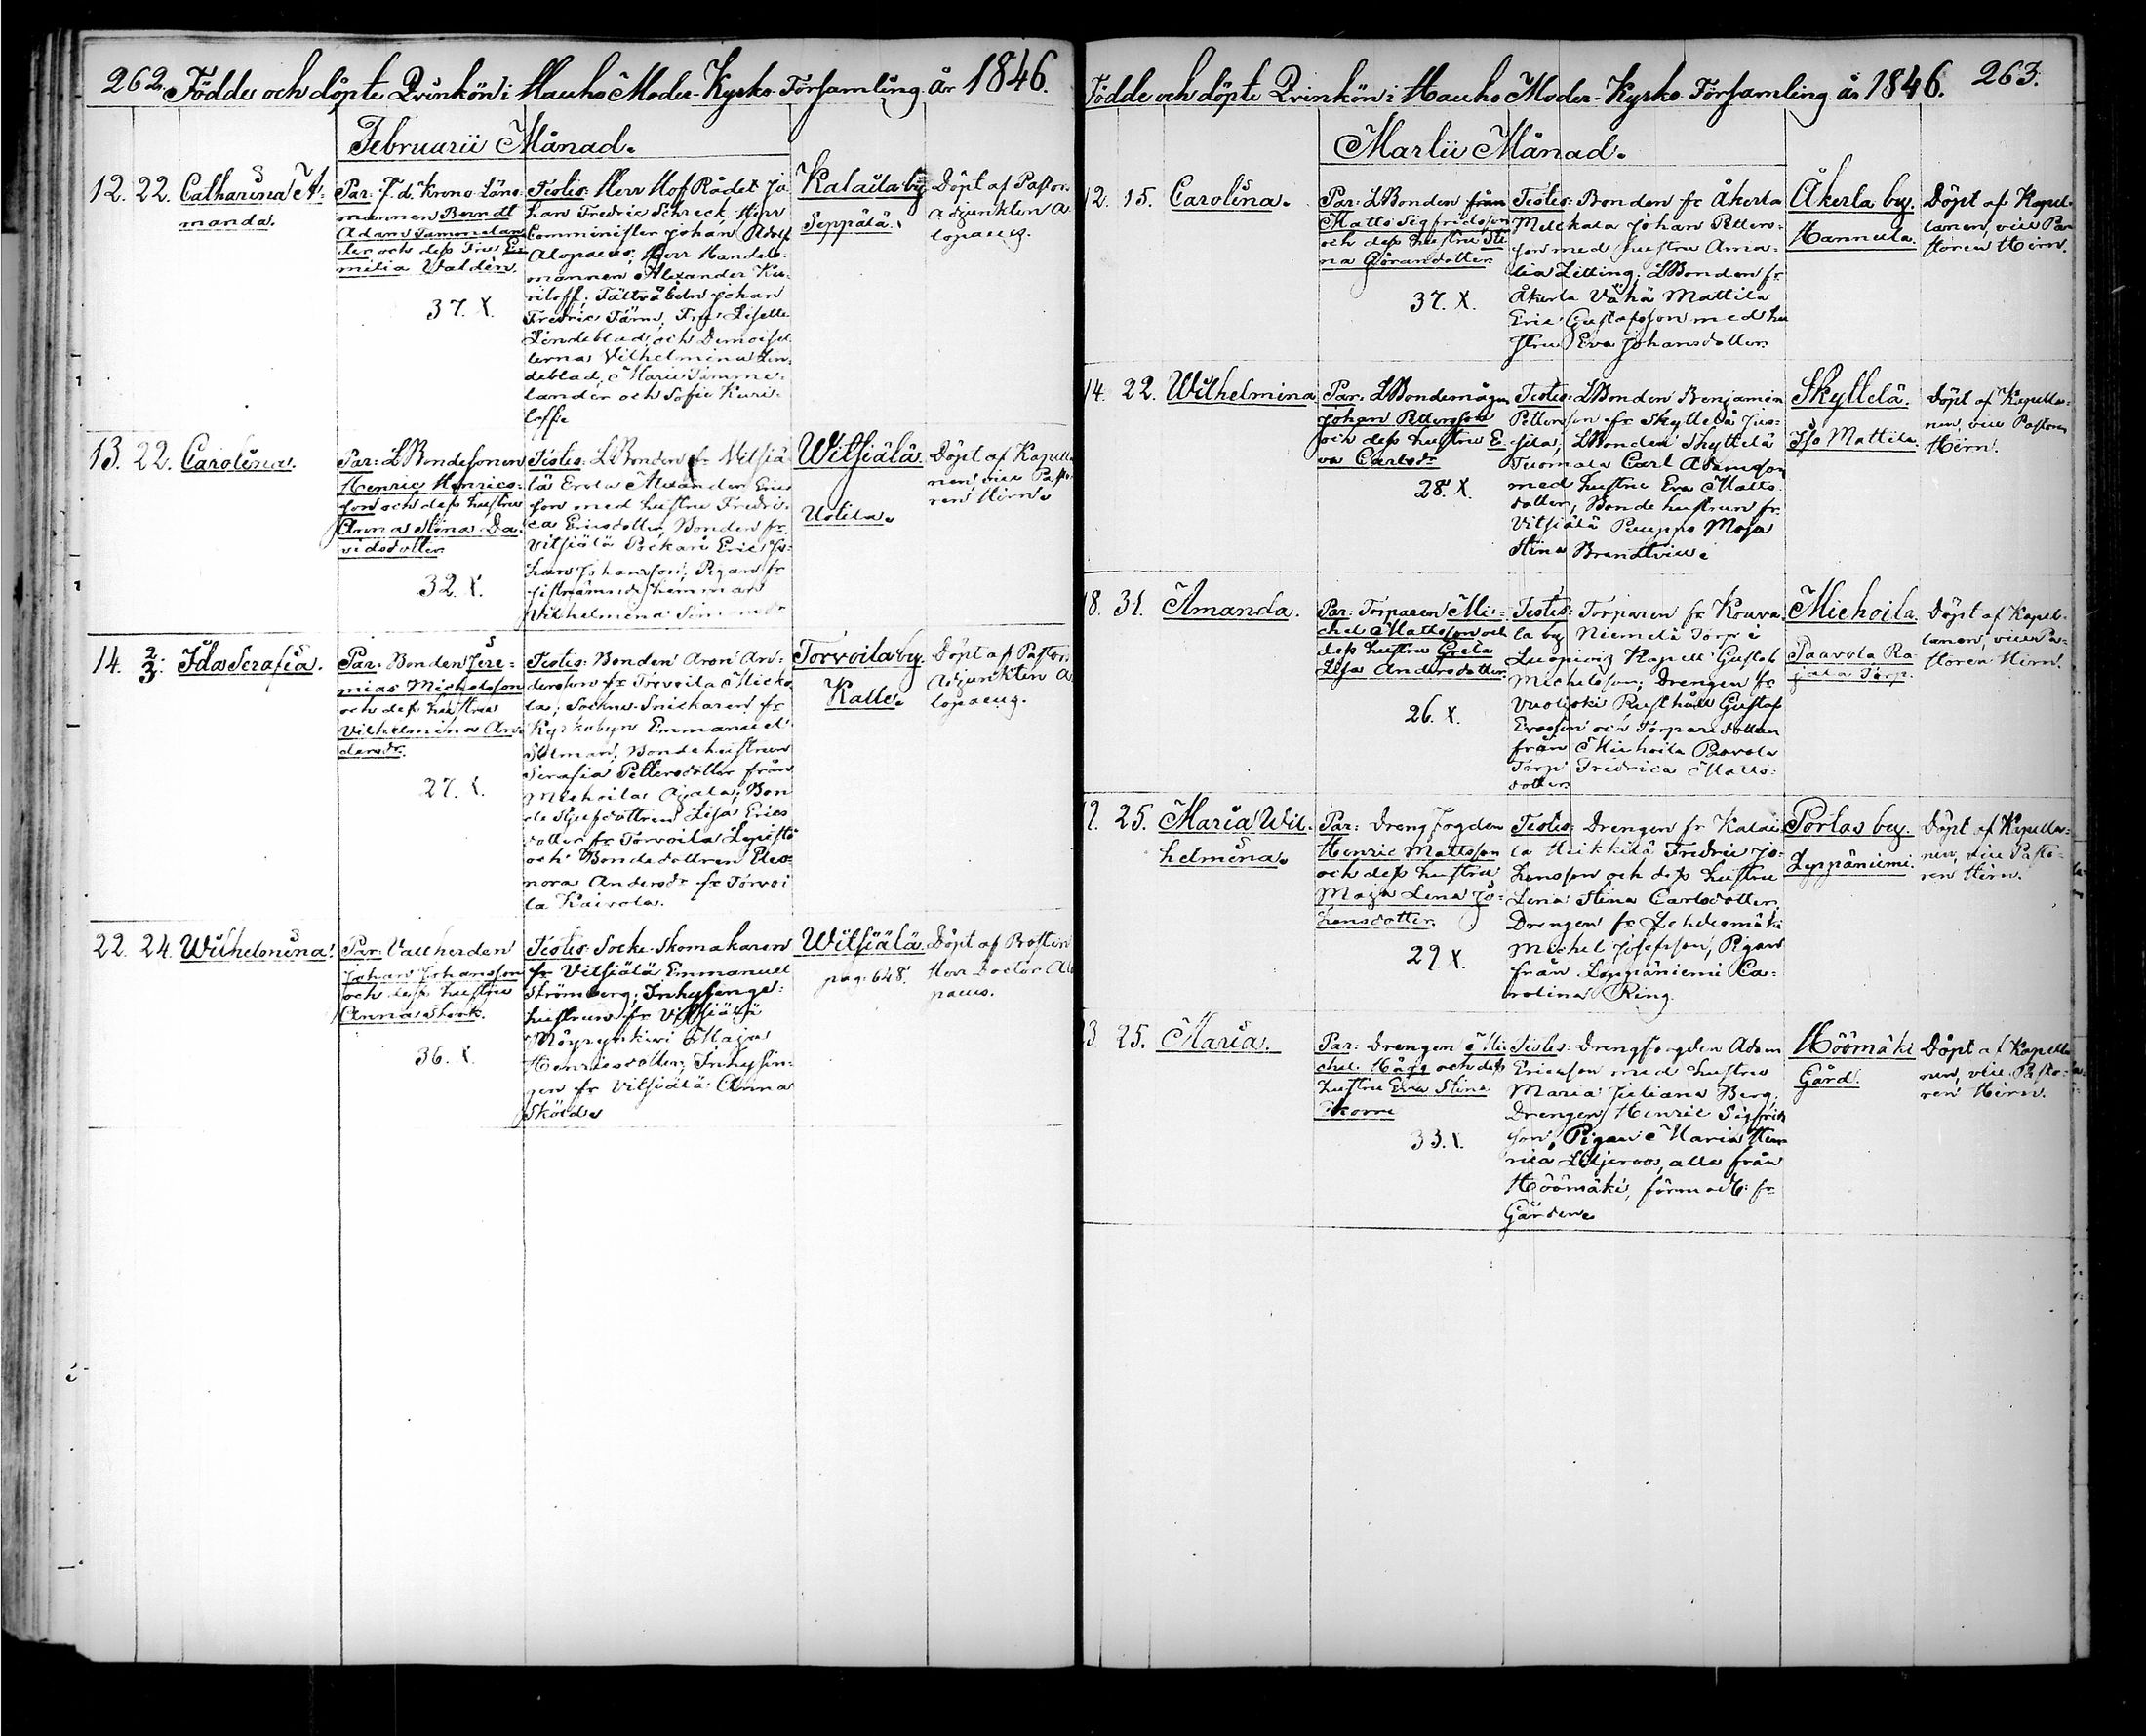 262. Födde och döpte Qvinkön i Hauho Moder-Kyrko Församling år 1846.
Februarii Månad.
12. 22. Catharina A-
manda.
Par: F.d. Krono Läns-
mannen Berndt
Adam Simmelan-
der och dess Fru Emilia Valdén.
37. X.
Testes: Herr Hof Rådet Jo-
han Fredric Schreck, Herr
Comminister Johan Adolf
Alopaeus; Herr Handels-
mannen Alexander Ku-
riloff; Johan
Fredric Fru Lisette
Lindeblad, och Demoisel-
lerna Vilhelmina Lin-
deblad, Marie Simme-
lander och Sofie Kuri-
loff.
Kalaila by
Seppälä.
Döpt af Pastors
Adjunkten A-
lopaeus.
13. 22. Carolina.
Par: LBondesonen
Henric Henrics-
son och dess hustru
Anna Stina Da-
vidsdotter.
32. X.
Testes: LBonden fr Vitsiä-
lä Erola Alexander Erics
son med hustru Fredri-
ca Ericsdotter, Bonden fr
Vitsiälä Eric Jo-
han Johansson, Pigan fr
hemman
Vilhelmina
Witsiälä.
Uotila.
Döpt af Kapella
nen, vice Pasto-
ren Hirn.
14. 2/3. Ida Serafia.
Par: Bonden Jere-
mias Michelsson
och dess hustru
Vilhelmina An-
dersdr.
27. X.
Testes: Bonden Aron An-
dersson fr Torvoila Micko-
la; Sockne Snickaren fr
Kyrkobyn Emmanuel
Bondehustrun
Serafia Pettersdotter från
Miehoila Ajala; Bon-
de Styfdottren Lisa Erics
dotter fr Torvoila Lepistö
och Bondedottren Eleo-
nora Andersdr fr Torvoi
la Kaivola.
Torvoila by.
Kalle.
Döpt af Pastors
Adjunkten A-
lopaeus.
22. 24. Wilhelmina.
Par: Vallherden
Johan Johansson
och dess hustru
Anna Stork.
36. X.
Testes: Socke-Skomakaren
fr Vitsiälä Emmanuel
Strömberg; Inhysinge-
hustrun fr Vitsiälä
Maja
Henricsdotter; Inhysin-
gen fr Vitsiälä Anna
Sköld.
Witsiälä.
pag: 648.
Döpt af Prosten
Herr Doctor Alo
paeus.
Födde och döpte Qvinkön i Hauho Moder-Kyrko Församling år 1846. 263.
Martii Månad.
12. 15. Carolina.
Par: LBonden från
Matts Sigfridsson
och dess hustru Sti-
na Göransdotter.
37. X.
Testes: Bonden fr Åkerla
Melckala Johan Petters-
son med hustru Ama-
lia Litting; LBonden fr
Åkerla Vähä Mattila
Eric Gustafsson med hu
stru Eva Johansdotter.
Åkerla by.
Hannula.
Döpt af Kapel-
lanen, vice Pa-
storen Hirn.
14. 22. Wilhelmina
Par: LBondemågen
Johan Pettersson
och dess hustru E-
va Carlsdr
28. X.
Testes: LBonden Benjamin
Pettersson fr Skyttelä Jus-
sila; LBonden Skyttelä
Tuomala Carl Adamsson
med hustru Eva Matts-
dotter, Bonde hustrun fr
Vitsiälä Puuppo Maja
Stina
Skyttelä.
Iso Mattila
Döpt af Kapella-
nen, vice Pastoren
Hirn.
18. 31. Amanda.
Par: Torparen Mi-
chel Mattsson och
dess hustru Greta
Lisa Andersdotter.
26. X.
Testes: Torparen fr Kouva-
la by Niemelä Torp i
Luopioiz Kapell Gustaf
Michelsson; Drengen fr
Vuoljoki Rusthåll Gustaf
Ericsson och Torparedottren
från Miehoila Paavola
Torp Fredrica Matts-
dotter.
Miehoila.
Paavola Ra
jala Torp.
Döpt af Kapel-
lanen, vice Pa-
storen Hirn.
25. Maria Wil-
helmina.
Par: Drengfogden
Henric Mattsson
och dess hustru
Maja Lena Jo-
hansdotter.
29. X.
Testes: Drengen fr Kalai-
la Heikkilä Fredric Jo-
hansson och dess hustru
Lena Stina Carlsdotter,
Drengen fr Lehdesmäki
Michel Josefsson, Pigan
från Leppäniemi Ca-
rolina Ring.
Portas by.
Leppäniemi.
Döpt af Kapella-
nen, vice Pasto-
ren Hirn.
23. 25. Maria.
Par: Drengen Mi-
chel Hägg och dess
hustru Eva Stina
Skorre
33. X.
Testes: Drengfogden Adam
Ericsson med hustru
Maria Juliana Berg;
Drengen Henric Sigfrids
son, Pigan Maria Hen-
rica Liljeroos, alla från
Höömäki, förmodl: fr
Gården.
Höömäki
Gård.
Döpt af Kapella-
nen, vice Pasto-
ren Hirn.